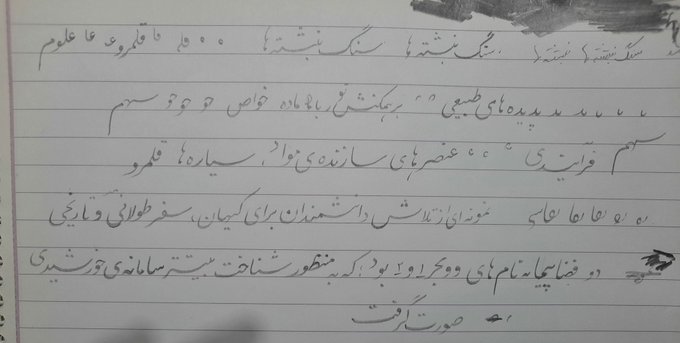 سنگ نبشته ها نبشته ها سنگ نبشته ها سنگ نبشته ها قلمرو علوم
پدیده های طبیعی برهمکنش نور با ماده خواص سهم
سهم فرآیندی عنصرهای سازنده ی مواد، سیاره ها قلمرو
نمونه ای از تلاش دانشمندان برای کیهان، سفر طولانی و تاریخی
دو فضاپیما به نام های وویجر ۱ و ۲ بود؛ که به منظور شناخت بیشتر سامانه ی خورشیدی
صورت گرفت